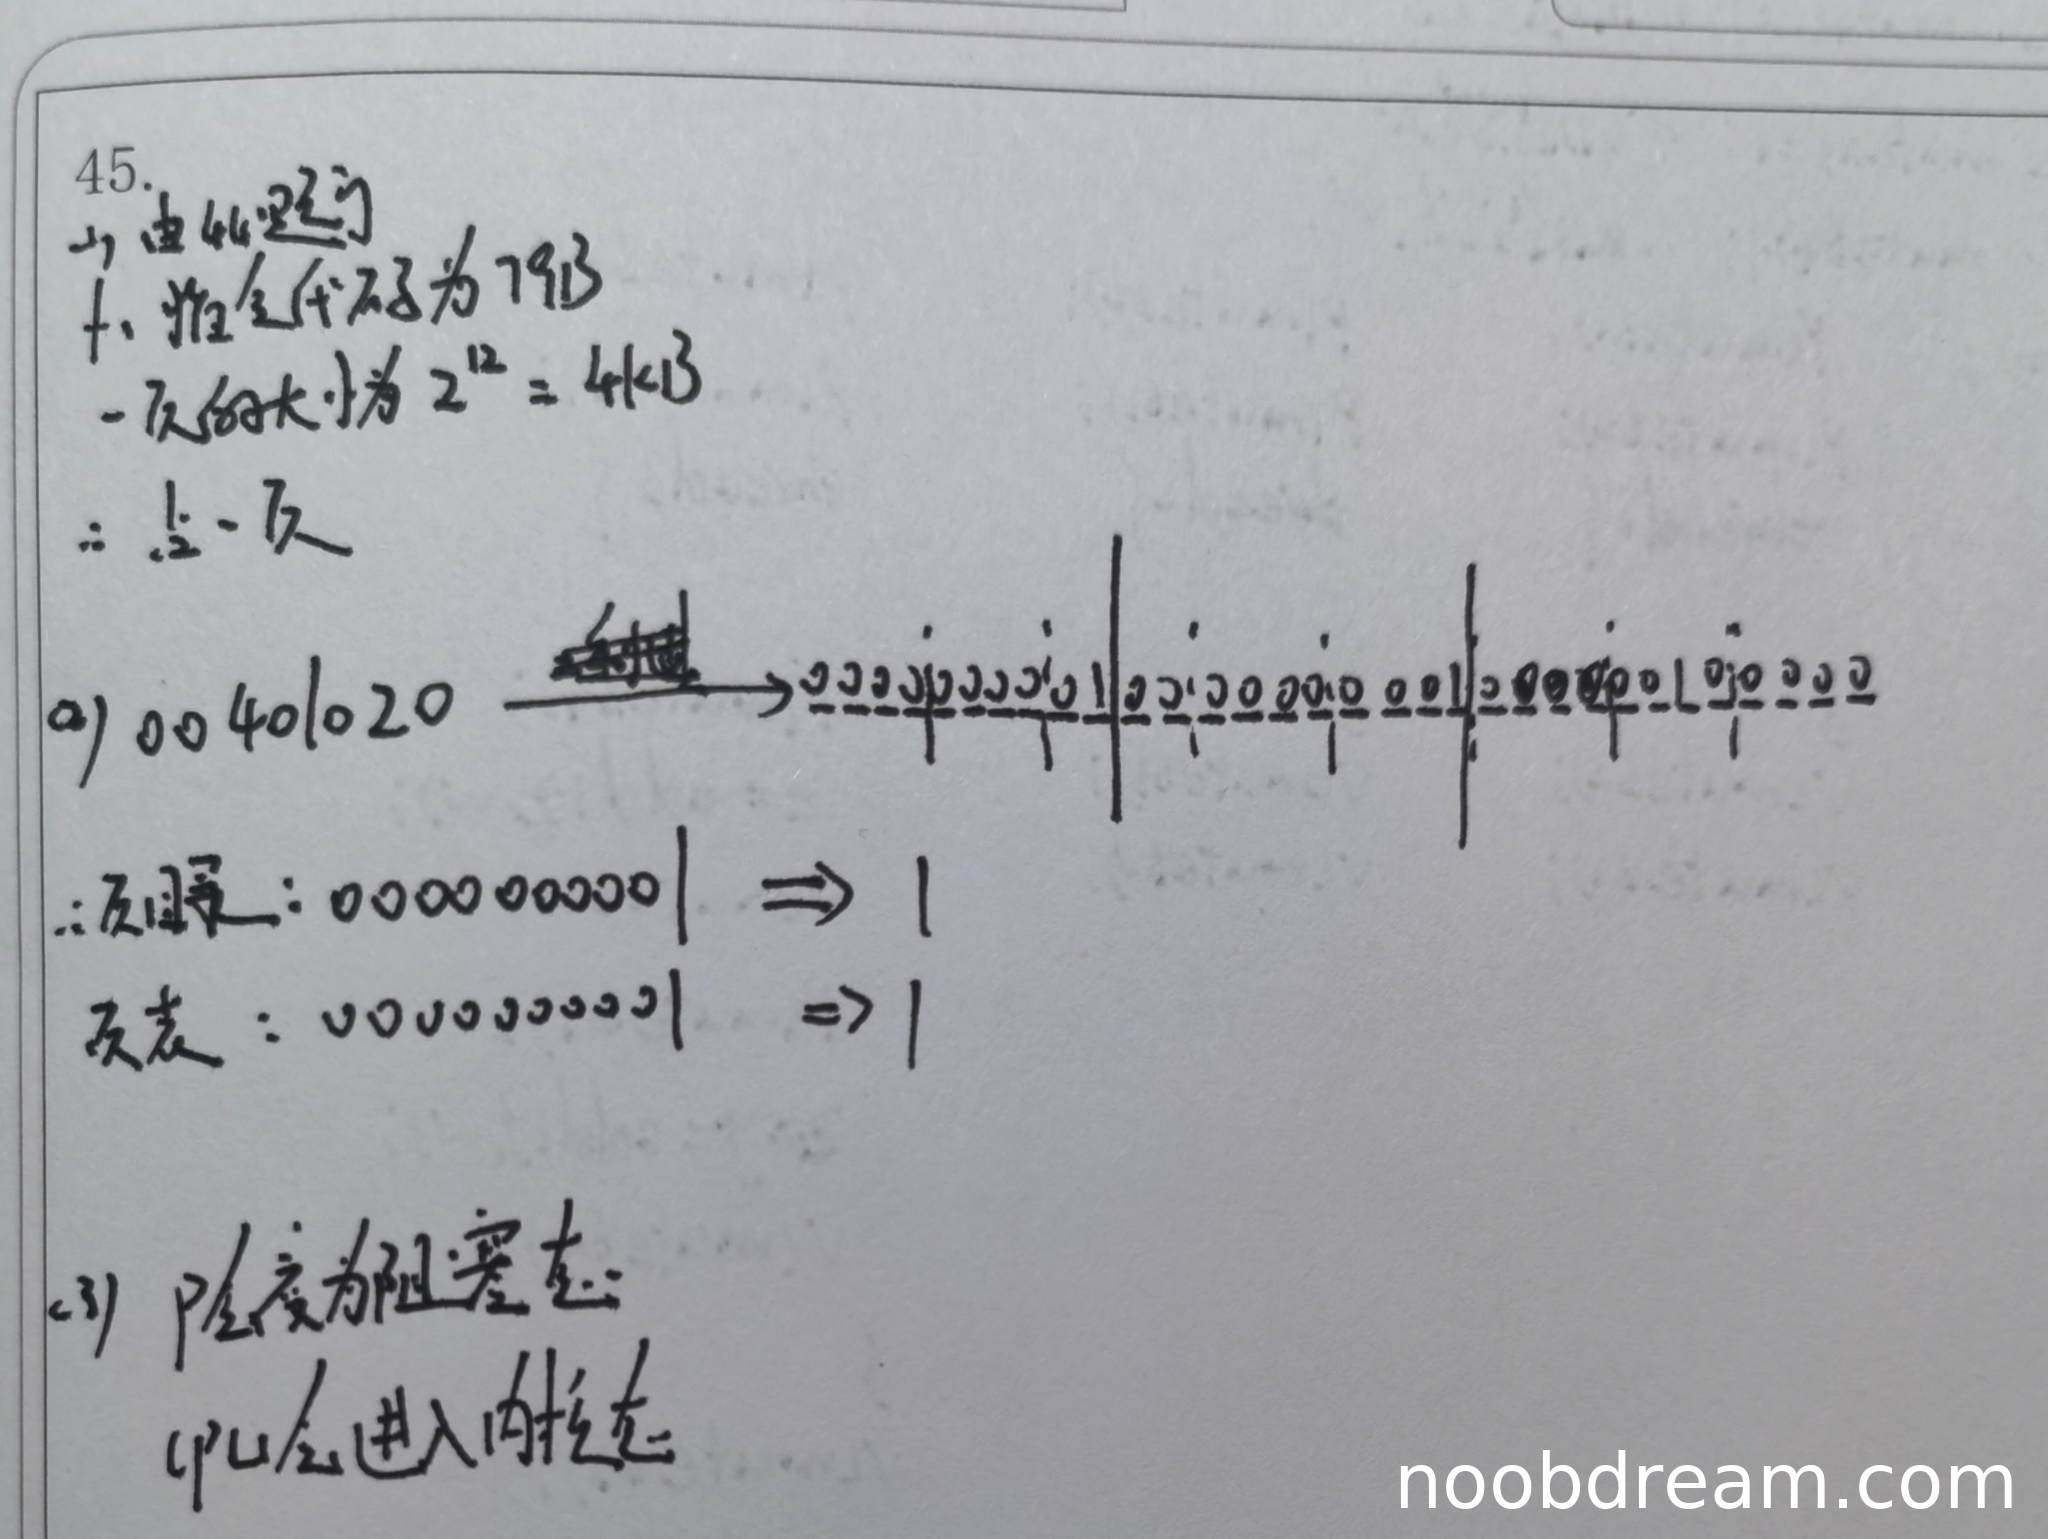 45.
(1) 由44题可
f1推全代码为79B
一页的大小为2^12 = 4KB
∴ 占一页
(2) 00401020 → 0000000001 0000000001 000000100000
∴页目录: 0000000001 ⇒ 1
页表: 0000000001 => 1
(3) P会变为阻塞态
CPU会进入内核态
noobdream.com